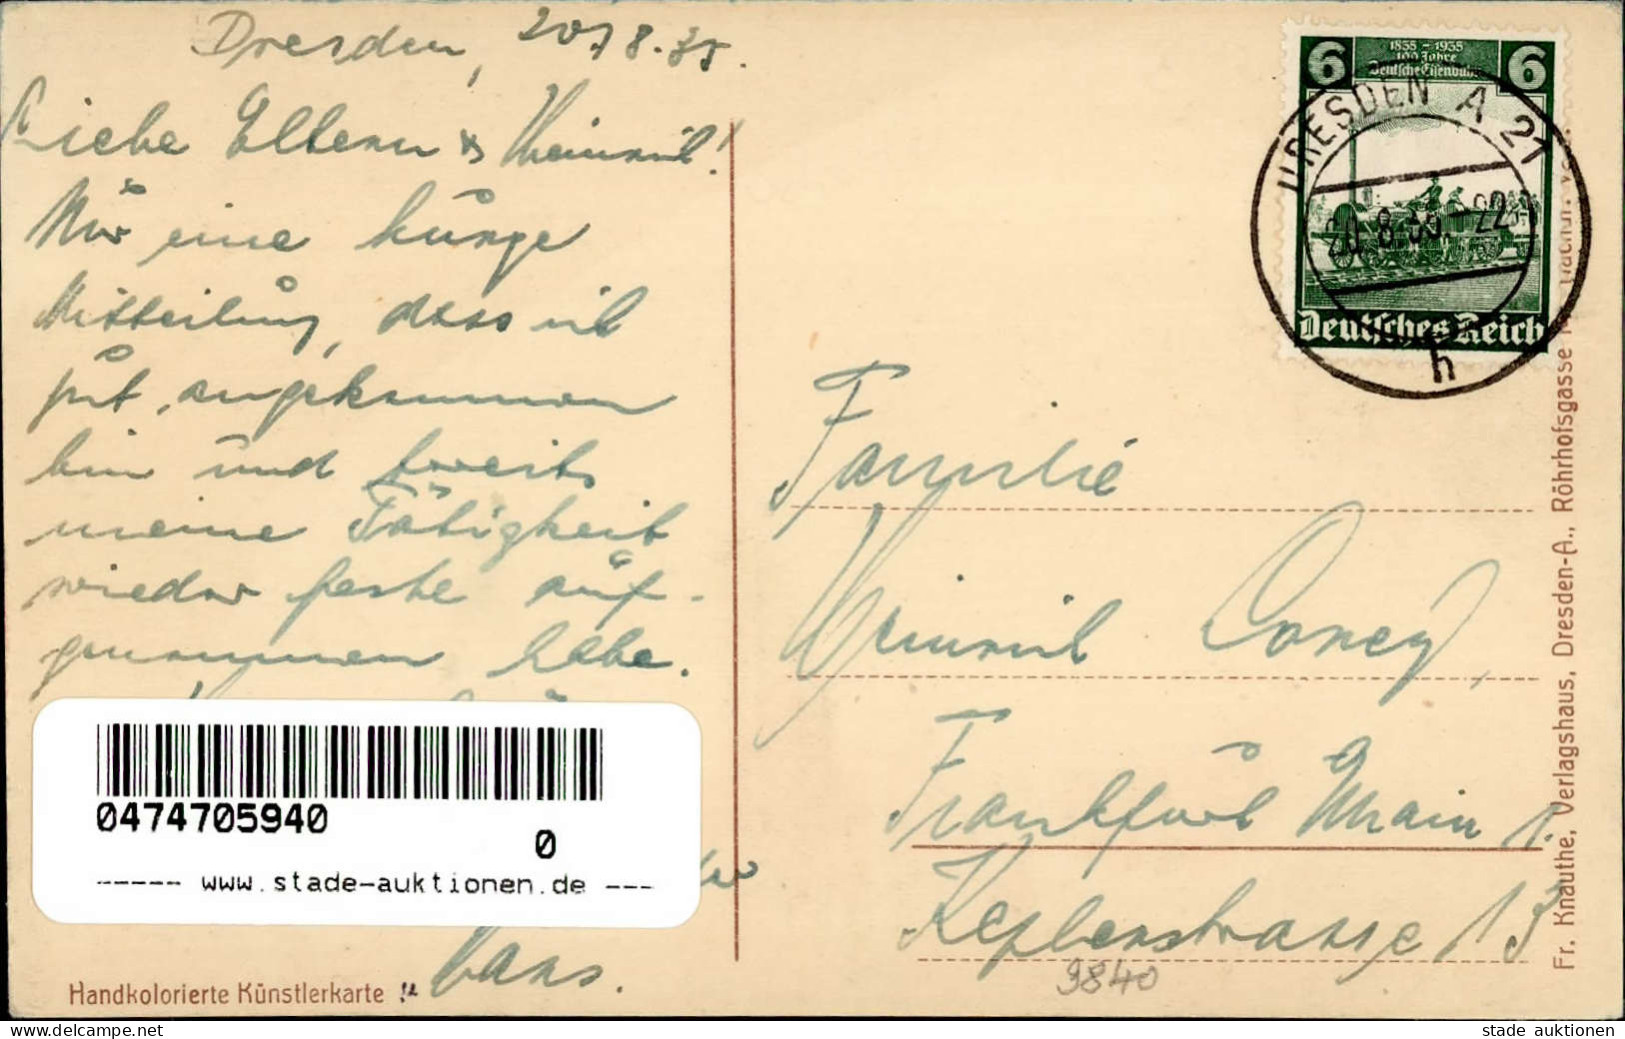 Dresden, 20.8.35.
Liebe Eltern & Heinrich!
Nur eine kurze
Mitteilung, dass ich
gut angekommen
bin und bereits
meine Tätigkeit
wieder feste auf-
genommen habe.
Hans.
0474705940
0
----- www.stade-auktionen.de ---
Handkolorierte Künstlerkarte
6 1835 - 1935 6
100 Jahre
Deutsche Eisenbahn
Deutsches Reich
DRESDEN A 21
20.8.35.-22
h
Familie
Heinrich
Frankfurt Main 1.
Keplerstrasse 13
9840
Fr. Knauthe, Verlagshaus, Dresden-A., Röhrhofsgasse
stade auktionen